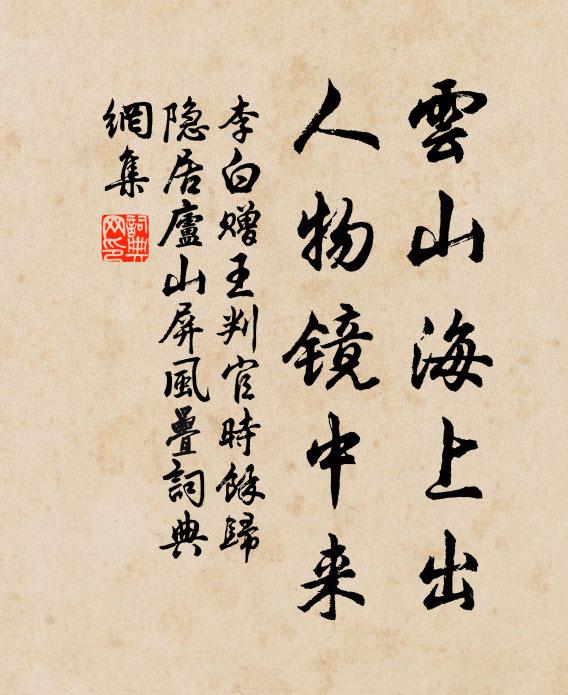 雲山海上出
人物镜中来
李白赠王判官時餘歸
隐居廬山屏風疊詞典
網集
詞典
网印